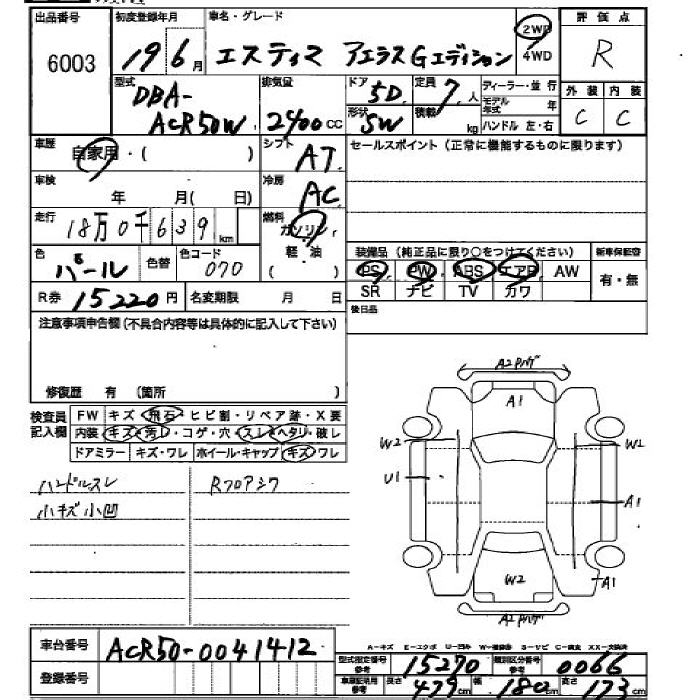 出品番号 初度登録年月 車名・グレード 2WD 評価点
6003 19 6月 エスティマ アエラスGエディション 4WD R
型式 排気量 ドア 5D 定員 7人 ディーラー・並行 外装 内装
DBA- モデル年式 年
ACR50W 2400cc 形状 SW 積載 kg ハンドル 左・右 C C
車歴 自家用・( ) シフト AT セールスポイント(正常に機能するものに限ります)
車検 年 月( 日) 冷房 AC
走行 18万0千639km 燃料 ガソリン
軽・油
( )
色 パール 色替 色コード 070 装備品(純正品に限り○をつけてください) 新車保証書
PS PW ABS エアB AW 有・無
R券 15220円 名変期限 月 日 SR ナビ TV カワ
注意事項申告欄(不具合内容等は具体的に記入して下さい) 後日品
修復歴 有 (箇所 )
検査員記入欄 FW キズ・飛石・ヒビ割・リペア跡・X要
内装 キズ・汚レ・コゲ・穴・スレ・ヘタリ・破レ
ドアミラー キズ・ワレ ホイール・キャップ キズ・ワレ
ハンドルスレ Rフロアシワ
小キズ小凹
A2
A1
W2 W2
U1 A1
W2 A1
A2
車台番号 ACR50-0041412
A-キズ E-エクボ U-凹み
登録番号 型式指定番号 参考 15270 類別区分番号 参考 0066
車検証記載用 参考 長さ 479cm 幅 180cm 高さ 173cm